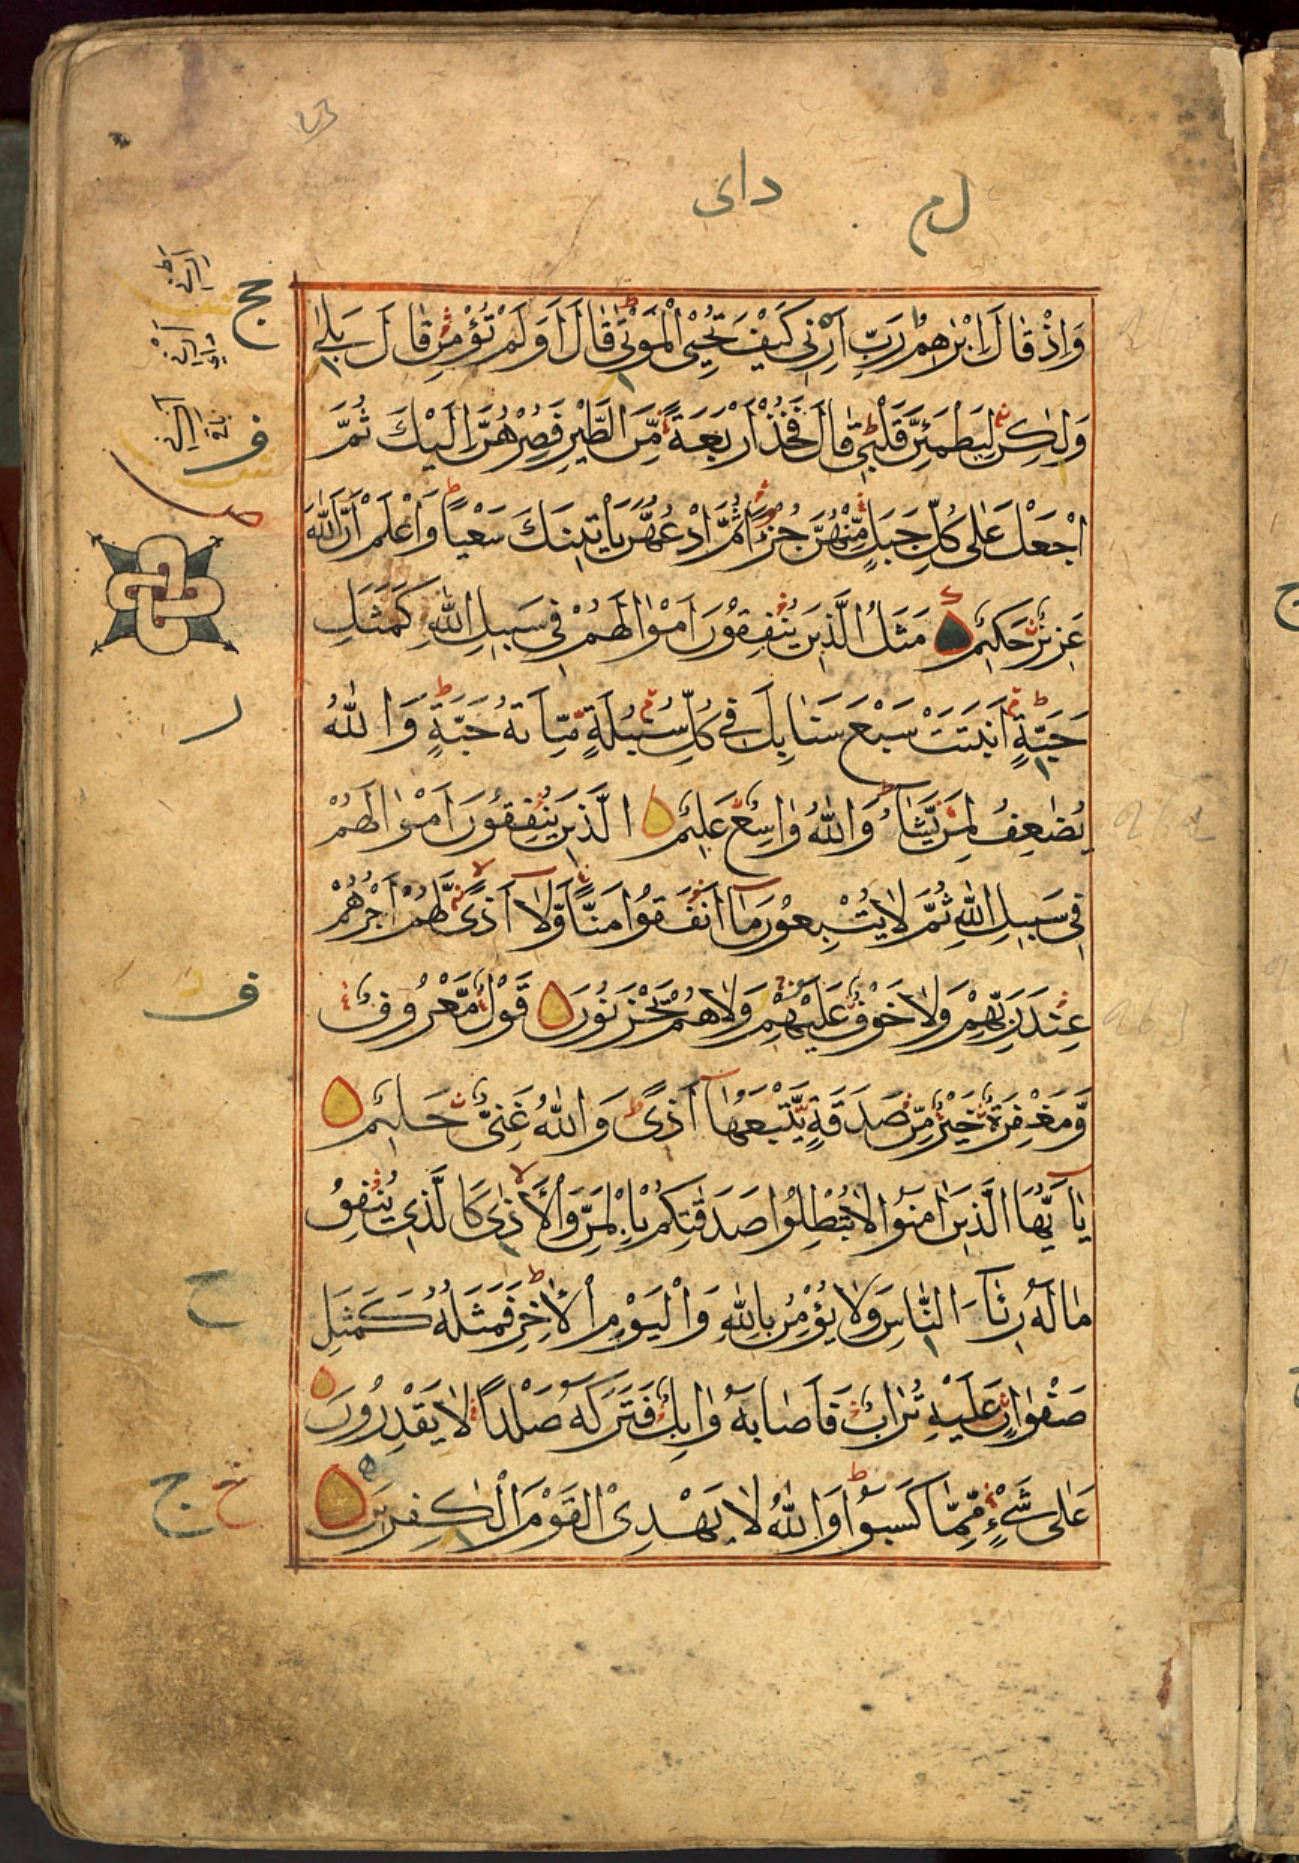 دای
وَاِذْ قَالَ اِبْرٰهٖمُ رَبِّ اَرِنِیْ كَیْفَ تُحْیِ الْمَوْتٰی قَالَ اَوَلَمْ تُؤْمِنْ قَالَ بَلٰی
وَلٰكِنْ لِیَطْمَئِنَّ قَلْبِیْ قَالَ فَخُذْ اَرْبَعَةً مِّنَ الطَّیْرِ فَصُرْهُنَّ اِلَیْكَ ثُمَّ
اجْعَلْ عَلٰی كُلِّ جَبَلٍ مِّنْهُنَّ جُزْءًا ثُمَّ ادْعُهُنَّ یَاْتِیْنَكَ سَعْیًا وَاعْلَمْ اَنَّ اللّٰهَ
عَزِیْزٌ حَكِیْمٌ مَثَلُ الَّذِیْنَ یُنْفِقُوْنَ اَمْوَالَهُمْ فِیْ سَبِیْلِ اللّٰهِ كَمَثَلِ
حَبَّةٍ اَنْبَتَتْ سَبْعَ سَنَابِلَ فِیْ كُلِّ سُنْبُلَةٍ مِّائَةُ حَبَّةٍ وَاللّٰهُ
یُضٰعِفُ لِمَنْ یَّشَآءُ وَاللّٰهُ وَاسِعٌ عَلِیْمٌ الَّذِیْنَ یُنْفِقُوْنَ اَمْوَالَهُمْ
فِیْ سَبِیْلِ اللّٰهِ ثُمَّ لَا یُتْبِعُوْنَ مَآ اَنْفَقُوْا مَنًّا وَّلَآ اَذًی لَّهُمْ اَجْرُهُمْ
عِنْدَ رَبِّهِمْ وَلَا خَوْفٌ عَلَیْهِمْ وَلَا هُمْ یَحْزَنُوْنَ قَوْلٌ مَّعْرُوْفٌ
وَّمَغْفِرَةٌ خَیْرٌ مِّنْ صَدَقَةٍ یَّتْبَعُهَآ اَذًی وَاللّٰهُ غَنِیٌّ حَلِیْمٌ
یٰٓاَیُّهَا الَّذِیْنَ اٰمَنُوْا لَا تُبْطِلُوْا صَدَقٰتِكُمْ بِالْمَنِّ وَالْاَذٰی كَالَّذِیْ یُنْفِقُ
مَالَهٗ رِئَآءَ النَّاسِ وَلَا یُؤْمِنُ بِاللّٰهِ وَالْیَوْمِ الْاٰخِرِ فَمَثَلُهٗ كَمَثَلِ
صَفْوَانٍ عَلَیْهِ تُرَابٌ فَاَصَابَهٗ وَابِلٌ فَتَرَكَهٗ صَلْدًا لَا یَقْدِرُوْنَ
عَلٰی شَیْءٍ مِّمَّا كَسَبُوْا وَاللّٰهُ لَا یَهْدِی الْقَوْمَ الْكٰفِرِیْنَ